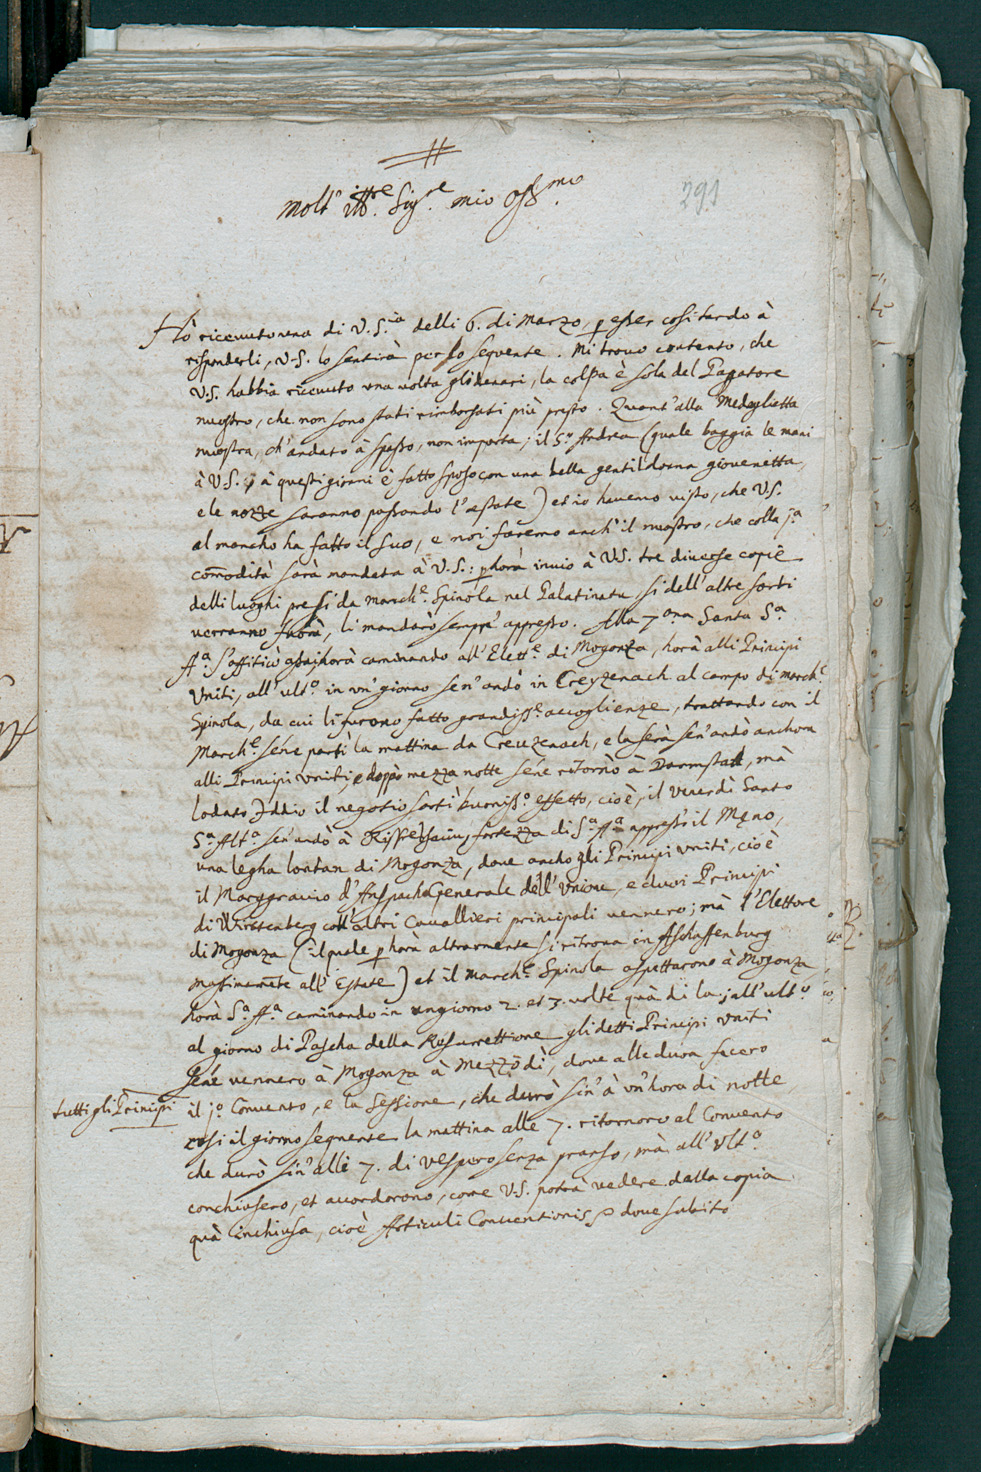 Molt' Ill.re Sig.re mio Oss.mo
291
Hò ricevuto una di V.S.ria delli 6. di Marzo, p esser cosi tardo à
risponderli, V.S. lo sentirà per lo sequente. Mi trovo contento, che
V.S. habbia ricevuto una volta gli denari, la colpa è sola del Pagatore
nuostro, che non sono stati rimborsati più presto. Quant' alla Medaglietta
nuostra, ch' andato à spasso, non importa; il S.r Andrea (quale baggia le mani
à V.S., à questi giorni è fatto sposo con una bella gentildonna giovenetta,
e le nozze saranno passando l'estate) et io havemo visto, che V.S.
al mancho ha fatto il suo, e noi faremo anch' il nuostro, che colla j.a
com̃odità sarà mandata à V.S.: p hora invio à VS. tre diverse copie
delli luoghi presi da March.e Spinola nel Palatinatu, si dell' altre sorti
verranno fuora, li mandarò sempre appresso. Alla 7.ana Santa S.a
A.a s'affiticò assai hora caminando all' Elett.e di Mogonza, horà alli Principi
Uniti, all' ult.o in un' giorno sen' andò in Creyzenach al campo di March.e
Spinola, da cui li furono fatto grandiss.e accoglienze, trattando con il
March.e sene partì la mattina da Creuzenach, e la serà sen' andò anchora
alli Principi uniti, e doppò mezza notte sene ritornò à Darmstatt, mà
lodato Iddio il negotio sortì buoniss.o effetto, cioè, il Venerdì Santo
S.a Alt.a sen' andò à Risselshaim, fortezza di S.a A.a appresso il Meno,
una legha lontan di Mogonza, dove ancho gli Principi uniti, cioè
il Marggravio d'Anspacha Generale dell' Unione, e duoi Principi
di Wirttenberg coll' altri Cavallieri principali vennero; mà l'Elettore
di Mogonza (il quale p hora altramente si ritrova in Aschaffenburg
massimam̃te all' Estate) et il March.e Spinola aspettarono à Mogonza
horà S.a A.a caminando in un giorno 2. et 3. volte quà di la; all' ult.o
al giorno di Pascha della Resurrettione gli detti Principi uniti
sene vennero à Mogonza à mezzo dì, dove alle duoa fecero
tutti gli Principi
il j.o Convento, e la Sessione, che durò sin' à un' hora di notte
cosi il giorno sequente la mattina alle 7. ritornoro al Convento
che durò sin' alle 7. di vespero senza pranso, mà all' ult.o
conchiusero, et accordorono, come V.S. potrà vedere dalla copia
quà inchiusa, cioè Articuli Conventionis dove subito